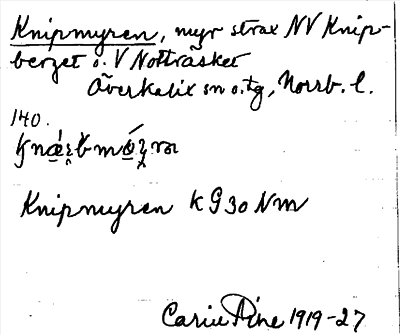 Knipmyren, myr strax NV Knip-
berget o. V Nottråsket
Överkalix sn o. tg, Norrb. l.
140.
Knipmyren k G 30 Nm
Carin Pihe 1919-27